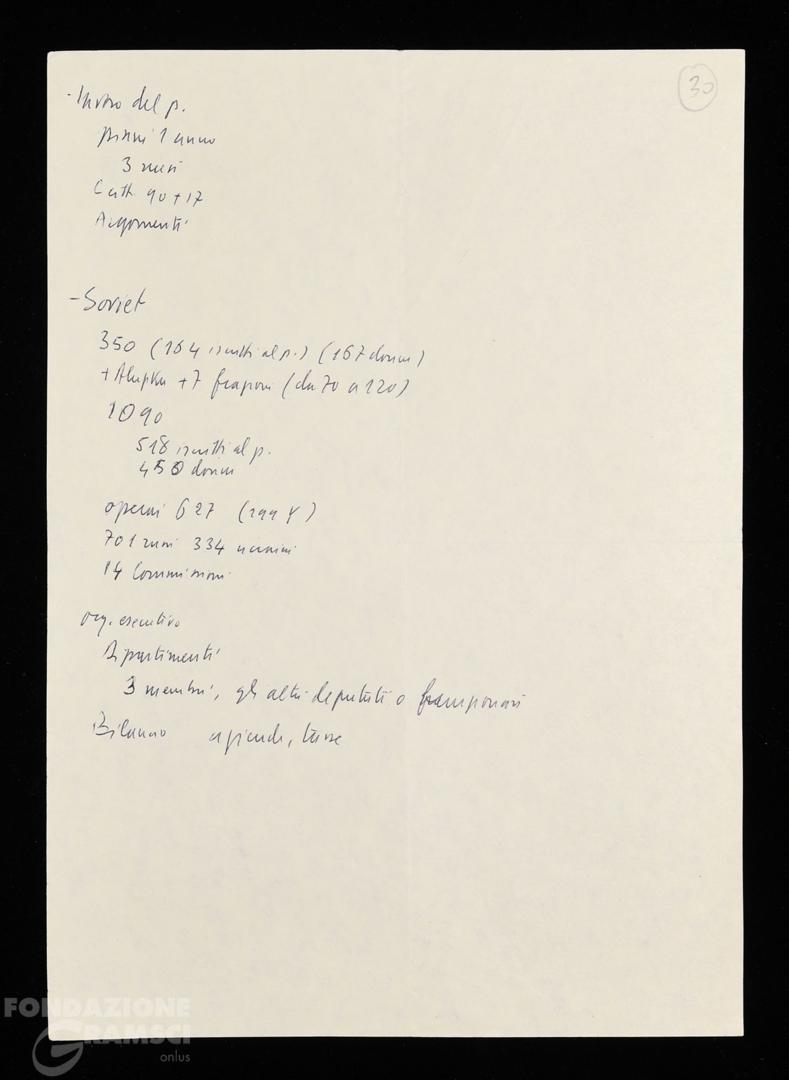 30
- Lavoro del p.
piani 1 anno
3 mesi
Catt. 90 + 17
Argomenti
- Soviet
350 (164 iscritti al p.) (167 donne)
+ Alupka + 7 frazioni (da 70 a 120)
1090
518 iscritti al p.
450 donne
operai 627 (299 )
701 russi 334 ucraini
14 Commissioni
org. esecutivo
Dipartimenti
3 membri, gli altri deputati o funzionari
Bilancio aziende, tasse
FONDAZIONE
GRAMSCI
onlus